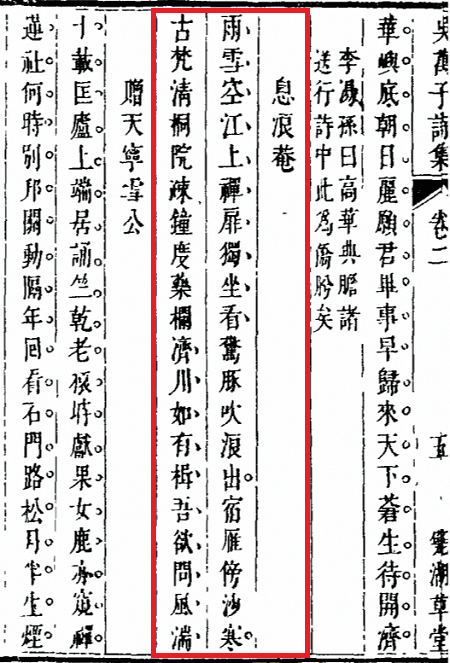 吳萬子詩集 卷二 五 甓湖草堂
華嶼底朝日麗願君畢事早歸來天下蒼生待開濟
李勗孫曰高華典贍諸
送行詩中此為僑肸矣
息浪菴
雨雪空江上禪扉獨坐看驚豚吹浪出宿雁傍沙寒
古梵清桐院疎鐘度藥欄濟川如有楫吾欲問風湍
贈天寧雪公
十載匡廬上端居誦竺乾老猿時獻果女鹿亦窺禪
蓮社何時別邗關動隔年回看石門路松月半生煙